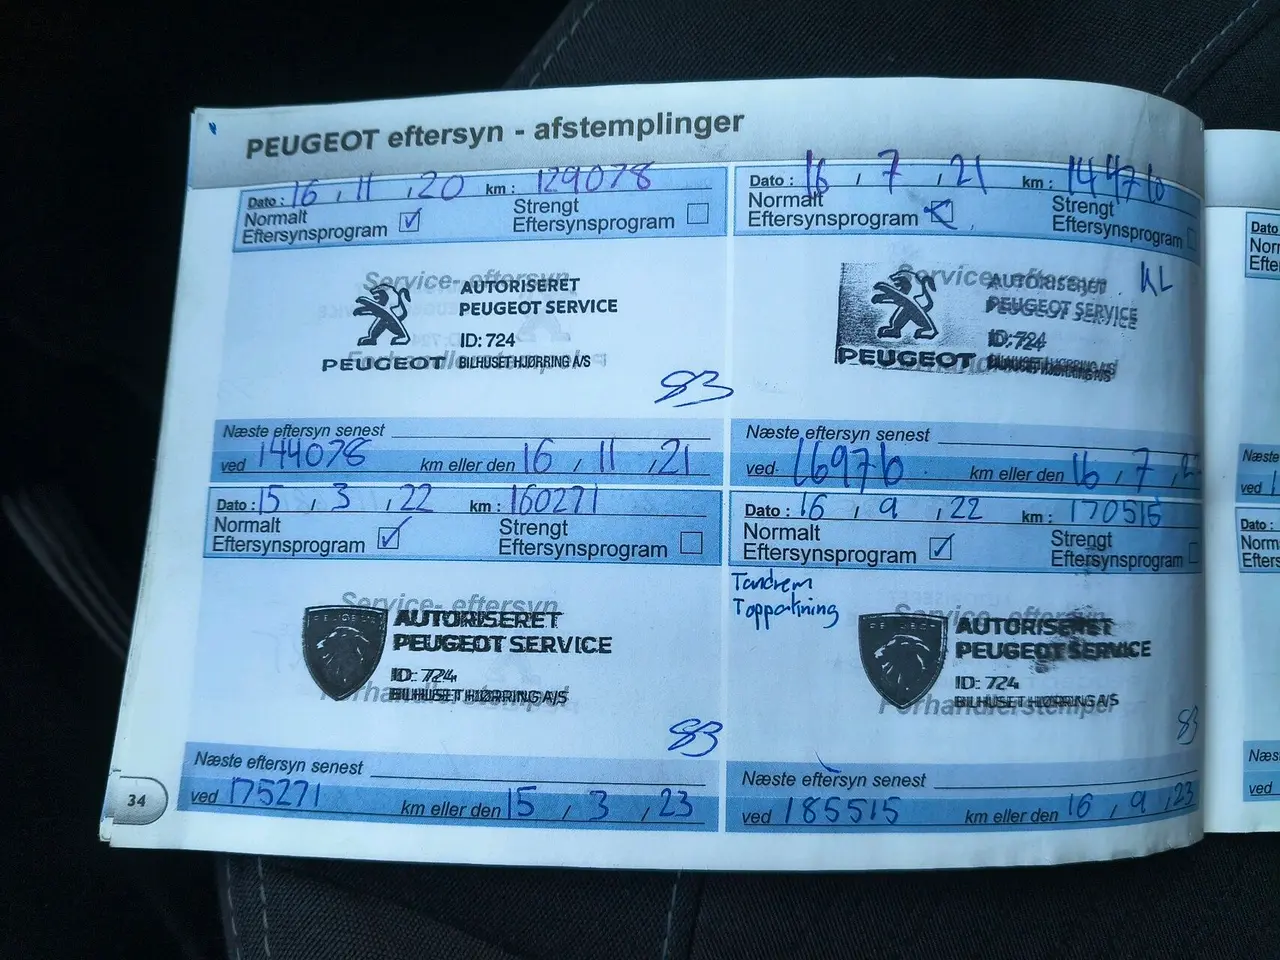 PEUGEOT eftersyn - afstemplinger
Dato : 16 , 11 , 20 km : 129078
Normalt Eftersynsprogram ✓ Strengt Eftersynsprogram
Service- eftersyn
AUTORISERET
PEUGEOT SERVICE
ID: 724
PEUGEOT BILHUSET HJØRRING A/S
83
Næste eftersyn senest
ved 144078 km eller den 16 , 11 , 21
Dato : 16 , 7 , 21 km :
Normalt Eftersynsprogram Strengt Eftersynsprogram
Service- eftersyn
KL
AUTORISERET
PEUGEOT SERVICE
ID: 724
PEUGEOT BILHUSET HJØRRING A/S
Næste eftersyn senest
ved km eller den 16 , 7 ,
Dato : 15 , 3 , 22 km : 160271
Normalt Eftersynsprogram ✓ Strengt Eftersynsprogram
Service- eftersyn
PEUGEOT
AUTORISERET
PEUGEOT SERVICE
ID: 724
BILHUSET HJØRRING A/S
Forhandlerstempel
83
Næste eftersyn senest
ved 175271 km eller den 15 , 3 , 23
Dato : 16 , 9 , 22 km : 170515
Normalt Eftersynsprogram ✓ Strengt Eftersynsprogram
Tandrem
Toppakning
Service- eftersyn
PEUGEOT
AUTORISERET
PEUGEOT SERVICE
ID: 724
BILHUSET HJØRRING A/S
Forhandlerstempel
83
Næste eftersyn senest
ved 185515 km eller den 16 , 9 , 23
34
Dato
Næste
ved
Dato :
ved